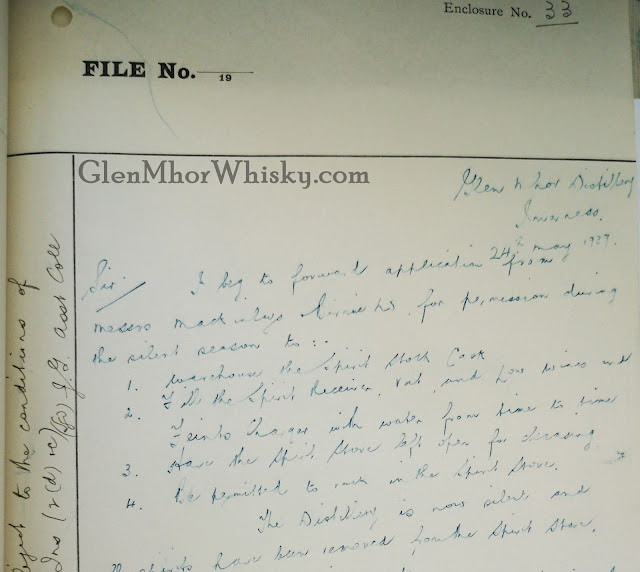 Enclosure No. 33
FILE No.
19
GlenMhorWhisky.com
Glen Mhor Distillery
Inverness.
24th May 1939.
Sir. I beg to forward application from
Messrs Mackinlays & Birnie Ltd. for permission during
the silent season to :-
1. Warehouse the Spirit Stock Cask
2. Fill the Spirit Receiver, Vat, and Low wines and
Feints Charger with water from time to time
3. Have the Spirit Store left open for cleaning
4. Be permitted to in the Spirit Store.
The Distillery is now silent and
spirits have been removed from the Spirit Store.
to the conditions of
Ins 12(d) J.G. Asst Coll